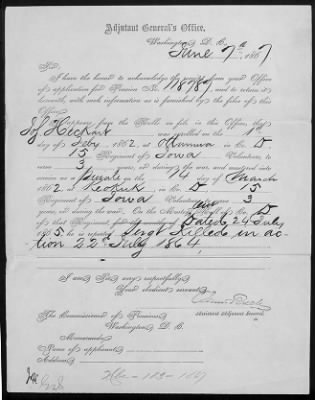 Adjutant General's Office,
Washington, D. C.
June 7th 1867
Sir:
I have the honor to acknowledge the receipt from your Office
of application for Pension No. 118787, and to return it
herewith, with such information as is furnished by the files of this
Office.
It appears from the Rolls on file in this Office, that
was enrolled on the 1st
day of Feby, 1862, at Ottumwa in Co. D
15 Regiment of Iowa Volunteers, to
serve 3 years, or during the war, and mustered into
service as a Private on the 14 day of March
1862, at Keokuk, in Co. D 15
Regiment of Iowa Volunteers, to serve 3
years, or during the war. On the Muster Roll of Co. D
of that Regiment, dated 24 July
1865, he is reported Sergt Killed in ac
tion 22d July 1864
I am, Sir, very respectfully,
Your obedient servant,
Assistant Adjutant General.
The Commissioner of Pensions,
Washington, D. C.
Memoranda:
Name of applicant
Address